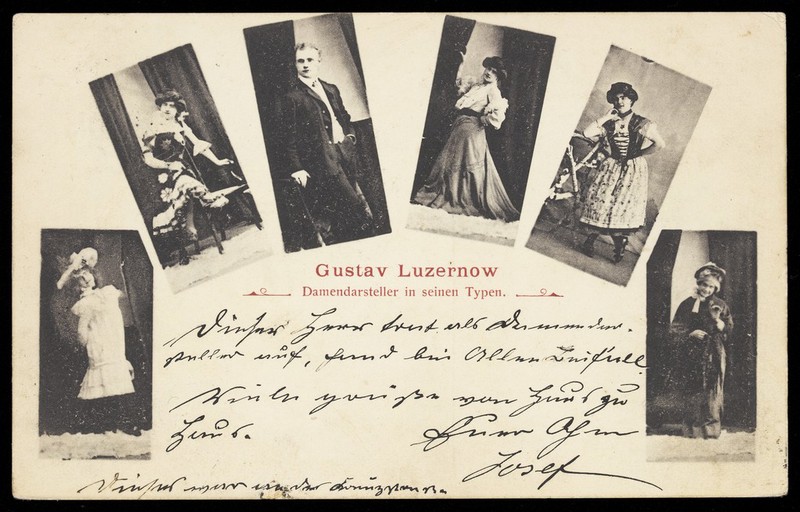 Gustav Luzernow
Damendarsteller in seinen Typen.
Dieser Herr trat als Damendar-
steller auf, fand bei Allen Beifall
Viele grüße von Haus zu
Haus.
Euer Ohm
Josef
Dieses war in der